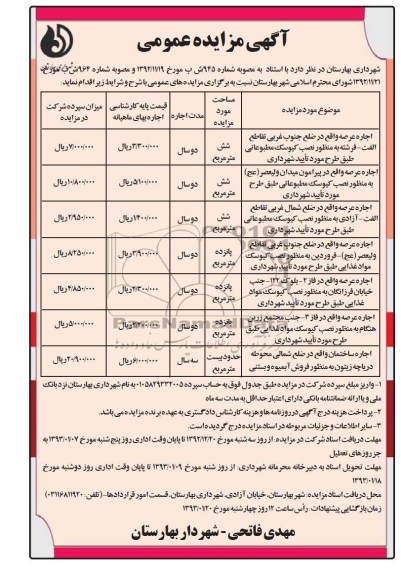 آگهی مزایده عمومی
شهرداری بهارستان در نظر دارد با استناد به مصوبه شماره ۹۴۵/ش ب مورخ ۱۳۹۲/۱۱/۱۹ و مصوبه شماره ۹۶۴/ش ب مورخ
۱۳۹۲/۱۱/۲۱ شورای محترم اسلامی شهر بهارستان نسبت به برگزاری مزایده های عمومی با شرح و شرایط زیر اقدام نماید.
موضوع مورد مزایده
مساحت مورد مزایده
مدت اجاره
قیمت پایه کارشناسی اجاره بهای ماهیانه
میزان سپرده شرکت در مزایده
اجاره عرصه واقع در ضلع جنوب غربی تقاطع
الفت-فرشته به منظور نصب کیوسک مطبوعاتی
طبق طرح مورد تأیید شهرداری
شش مترمربع
دو سال
۳/۳۰۰/۰۰۰ ریال
۷/۰۰۰/۰۰۰ ریال
اجاره عرصه واقع در پیرامون میدان ولیعصر (عج)
به منظور نصب کیوسک مطبوعاتی طبق طرح
مورد تأیید شهرداری
شش مترمربع
دو سال
۵/۱۰۰/۰۰۰ ریال
۱۰/۸۰۰/۰۰۰ ریال
اجاره عرصه واقع در ضلع شمال غربی تقاطع
الفت-آزادی به منظور نصب کیوسک مطبوعاتی
طبق طرح مورد تأیید شهرداری
شش مترمربع
دو سال
۱/۴۰۰/۰۰۰ ریال
۲/۹۵۰/۰۰۰ ریال
اجاره عرصه واقع در ضلع جنوب غربی تقاطع
ولیعصر (عج)-فروردین به منظور نصب کیوسک
مواد غذایی طبق طرح مورد تأیید شهرداری
پانزده مترمربع
دو سال
۳/۹۰۰/۰۰۰ ریال
۸/۲۵۰/۰۰۰ ریال
اجاره عرصه واقع در فاز ۲- بلوک ۱۲۲- جنب
خیابان فرزانگان به منظور نصب کیوسک مواد
غذایی طبق طرح مورد تأیید شهرداری
پانزده مترمربع
دو سال
۲/۳۰۰/۰۰۰ ریال
۴/۸۵۰/۰۰۰ ریال
اجاره عرصه واقع در فاز ۳- جنب مجتمع زرین
هنگام به منظور نصب کیوسک مواد غذایی طبق
طرح مورد تأیید شهرداری
پانزده مترمربع
دو سال
۵/۰۰۰/۰۰۰ ریال
اجاره ساختمان واقع در ضلع شمالی محوطه
دریاچه زیتون به منظور فروش آبمیوه و بستنی
حدود بیست مترمربع
سه سال
۶/۰۰۰/۰۰۰ ریال
۲۰/۹۰۰/۰۰۰ ریال
۱- واریز مبلغ سپرده شرکت در مزایده طبق جدول فوق به حساب سپرده ۰۱۰۵۸۲۹۳۳۲۰۰۵ به نام شهرداری بهارستان نزد بانک
ملی و یا ارائه ضمانتنامه بانکی دارای اعتبار حداقل به مدت سه ماه
۲- پرداخت هزینه درج آگهی در روزنامه ها و هزینه کارشناس دادگستری به عهده برنده مزایده می باشد.
۳- سایر اطلاعات و جزئیات مربوطه در اسناد مزایده درج گردیده است.
مهلت دریافت اسناد شرکت در مزایده: از روز سه شنبه مورخ ۱۳۹۲/۱۲/۲۰ تا پایان وقت اداری روز پنج شنبه مورخ ۱۳۹۳/۰۱/۰۷ به
جز روزهای تعطیل
مهلت تحویل اسناد به دبیرخانه محرمانه شهرداری: از روز شنبه مورخ ۱۳۹۳/۰۱/۰۹ تا پایان وقت اداری روز دوشنبه مورخ
۱۳۹۳/۰۱/۱۸
محل دریافت اسناد مزایده: شهر بهارستان، خیابان آزادی، شهرداری بهارستان، قسمت امور قراردادها-(تلفن: ۰۳۱۱۶۸۱۱۹۲۰)
زمان بازگشایی پیشنهادات: رأس ساعت ۱۲ روز چهارشنبه مورخ ۱۳۹۳/۰۱/۲۰
مهدی فاتحی - شهردار بهارستان